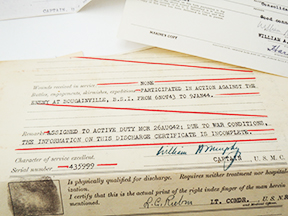 WARDEN COPY
WILLIAM A
Wounds received in service NONE
Battles, engagements, skirmishes, expeditions PARTICIPATED IN ACTION AGAINST THE
ENEMY AT BOUGAINVILLE, B.S.I. FROM
Remarks ASSIGNED TO ACTIVE DUTY MCR 26AUG42; DUE TO WAR CONDITIONS,
THE INFORMATION ON THIS DISCHARGE CERTIFICATE IS INCOMPLETE.
Character of service excellent. William A Murphy
Serial number 435999 CAPTAIN U. S. M. C.
Is physically qualified for discharge. Requires neither treatment nor hospital-
I certify that this is the actual print of the right index finger of the man herein
mentioned.
LT. COMDR. U. S. N